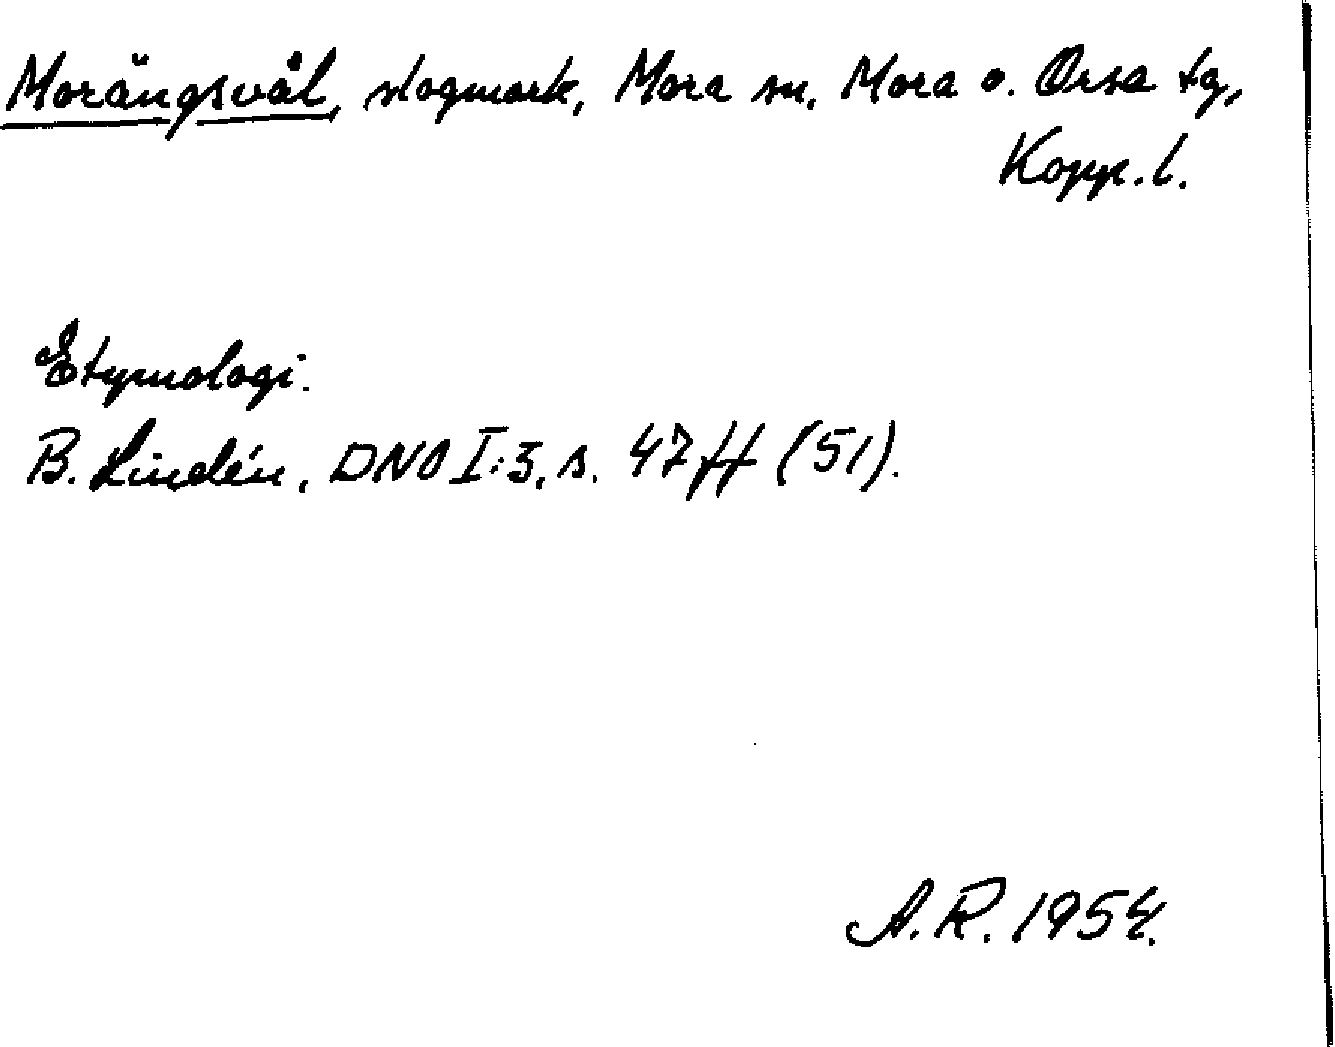 Morängsvål, skogmark, Mora sn, Mora o. Orsa tg,
Kopp. l.
Etymologi.
B. Lindén, DNO I:3, s. 47 ff (51).
A.R. 1954.